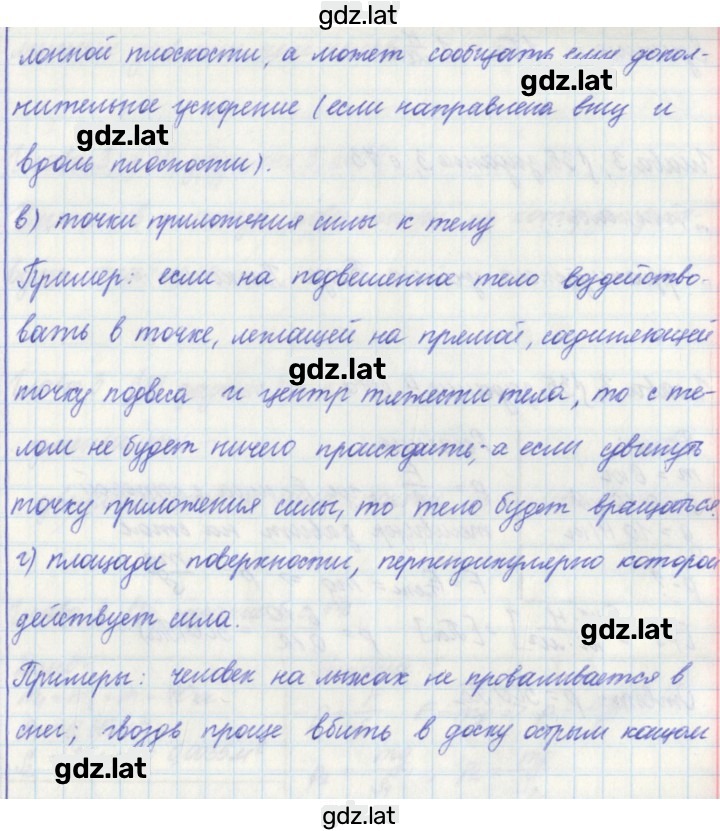 gdz.lat
лонной плоскости, а может сообщать ему допол-
gdz.lat
нительное ускорение (если направлена вниз и
gdz.lat
вдоль плоскости).
в) точки приложения силы к телу
Пример: если на подвешенное тело воздейство-
вать в точке, лежащей на прямой, соединяющей
gdz.lat
точку подвеса и центр тяжести тела, то с те-
лом не будет ничего происходить; а если сдвинуть
точку приложения силы, то тело будет вращаться.
г) площади поверхности, перпендикулярно которой
действует сила.
gdz.lat
Примеры: человек на лыжах не проваливается в
снег; гвоздь проще вбить в доску острым концом
gdz.lat
gdz.lat